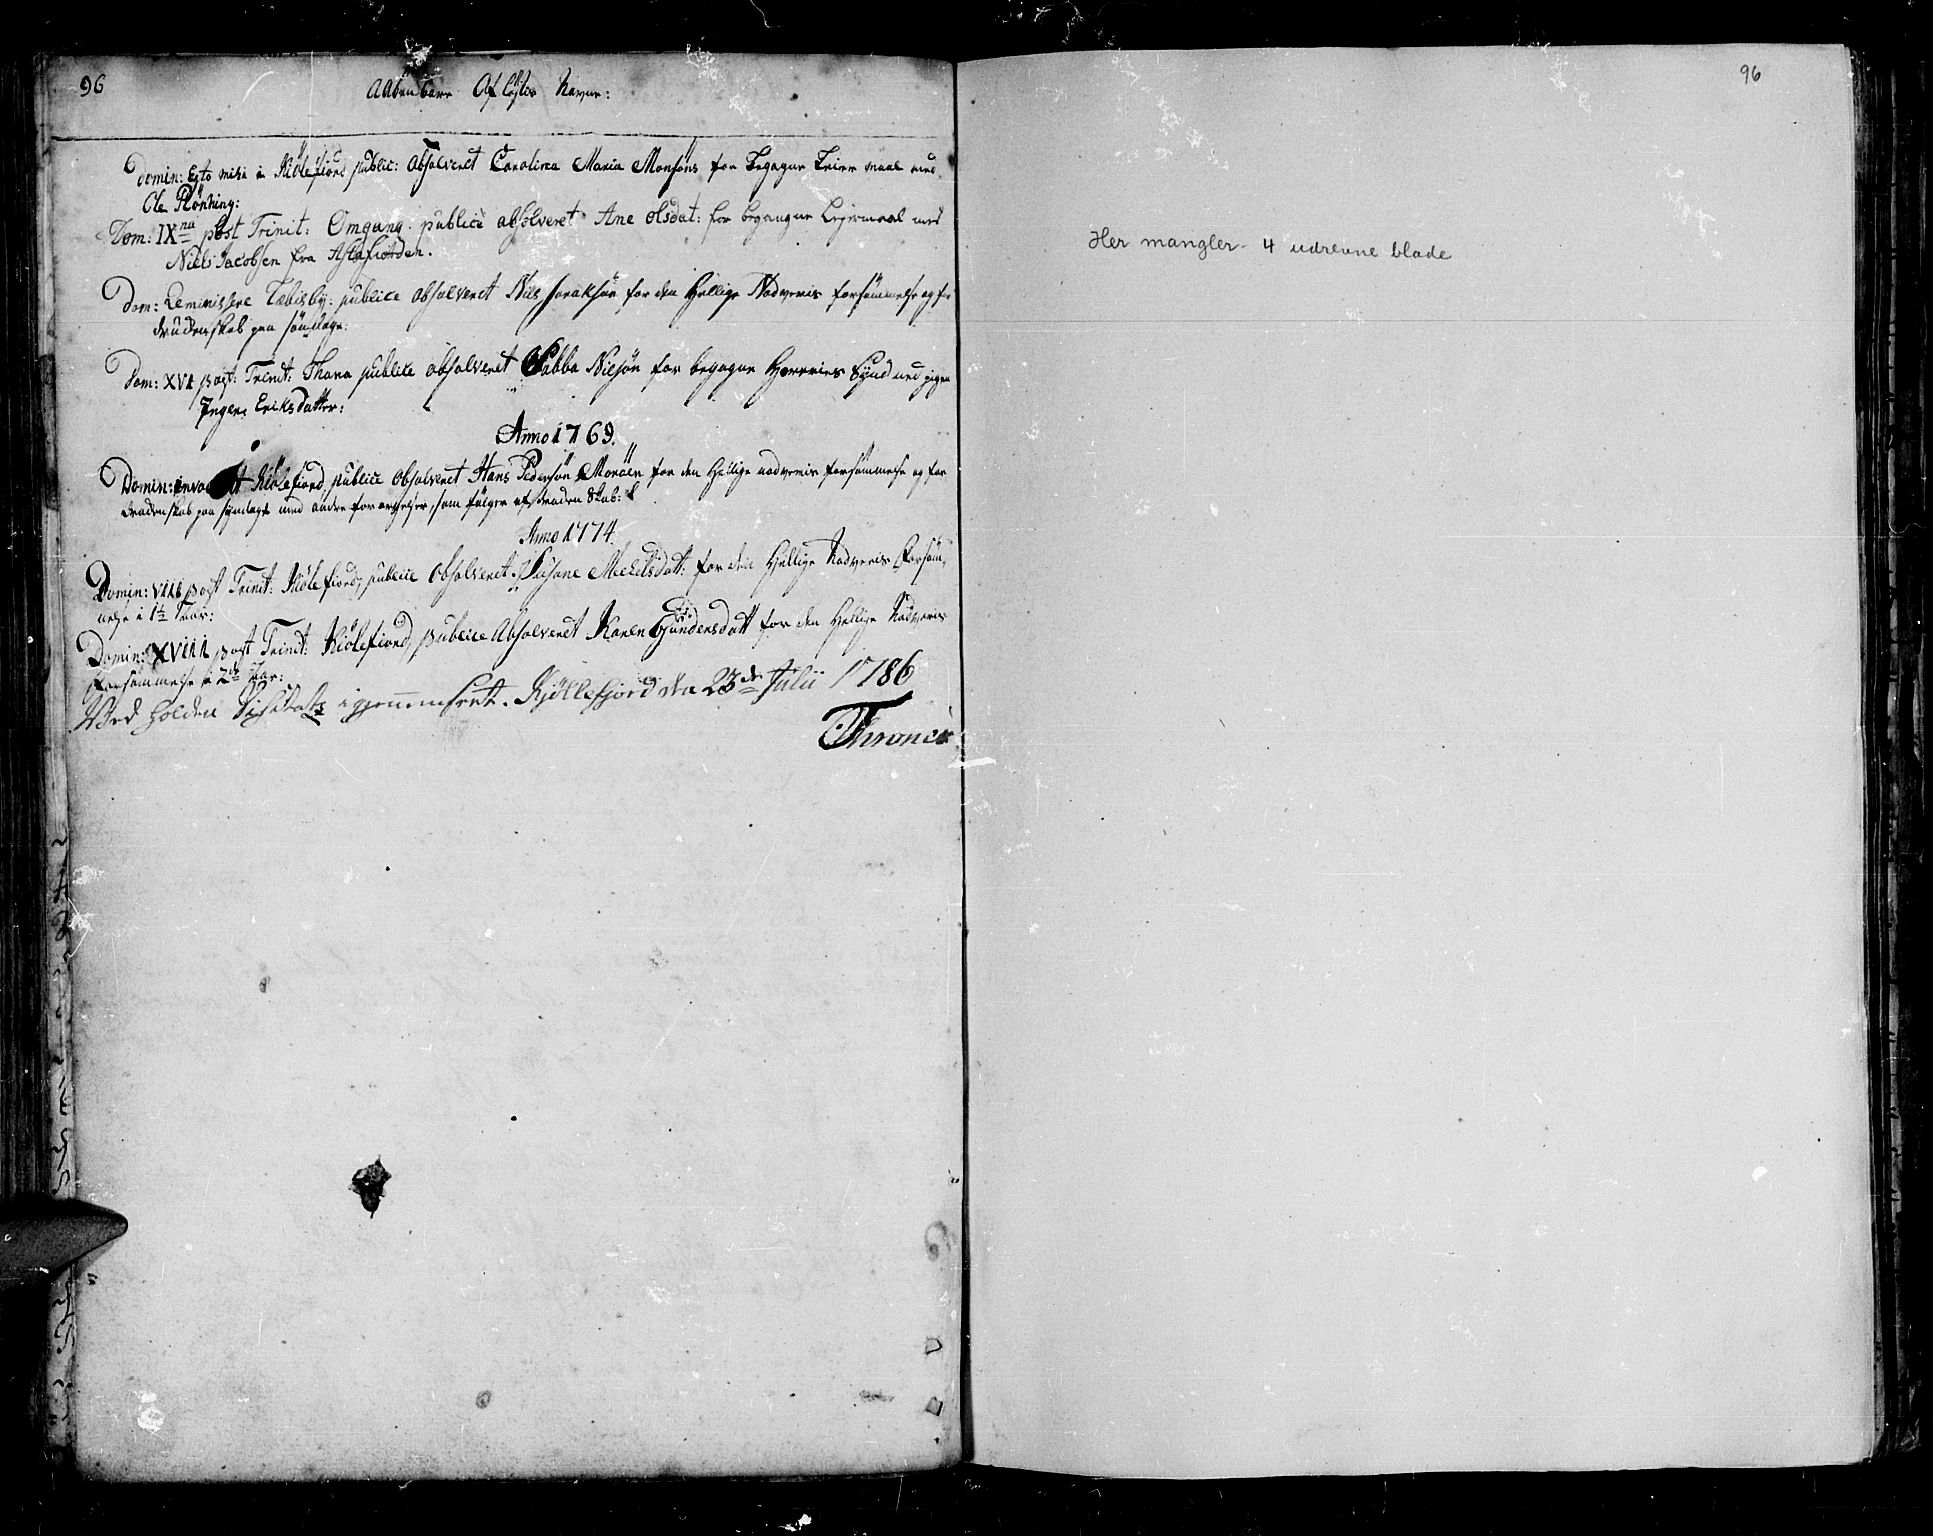 96
Aabenbare Afløste Navne:
Domin: Esto mihi i Kiölefiord public: absolveret Carolina Maria Monsöns for begagne Leier maal med
Ole Rönning:
Dom: IXna post Trinit: Omgang. publicè absolveret Ane Olsdat: for begangne Lejermaal med
Niels Jacobsen fra
Dom: Reminiscere Tabisby: publice absolveret Nils for den Hellige Nadveris forsömmelse og for
druckenskab paa söndage:
Dom: XVI post: Trinit: Thana publice absolveret Sabba Nilsön for begagne Horeries Synd med pigen
Inger Eriksdatter:
Anno 1769.
Domin: Kiölefiord publice absolveret Hans Pedersön for den Hellige nadveris forsömmelse og for
druckenskab paa syndage med andre forargelser, som fölger af drucken Skab:
Anno 1774.
Domin: VIII post Trinit: Kiölefiord, publice absolveret Susane Michelsdatt: for den Hellige Nadveris Forsöm,
melse i 1½ Aar:
Domin: XVIII post Trinit: Kiölefiord, publice Absolveret Karen Gundersdatt for den Hellige Nadveris
Forsömmelse i 2de Aar:
Ved holden Visitatz igjennemseet. Kjöllefjord den 23de Julii 1786
96
Her mangler 4 udrevne blade